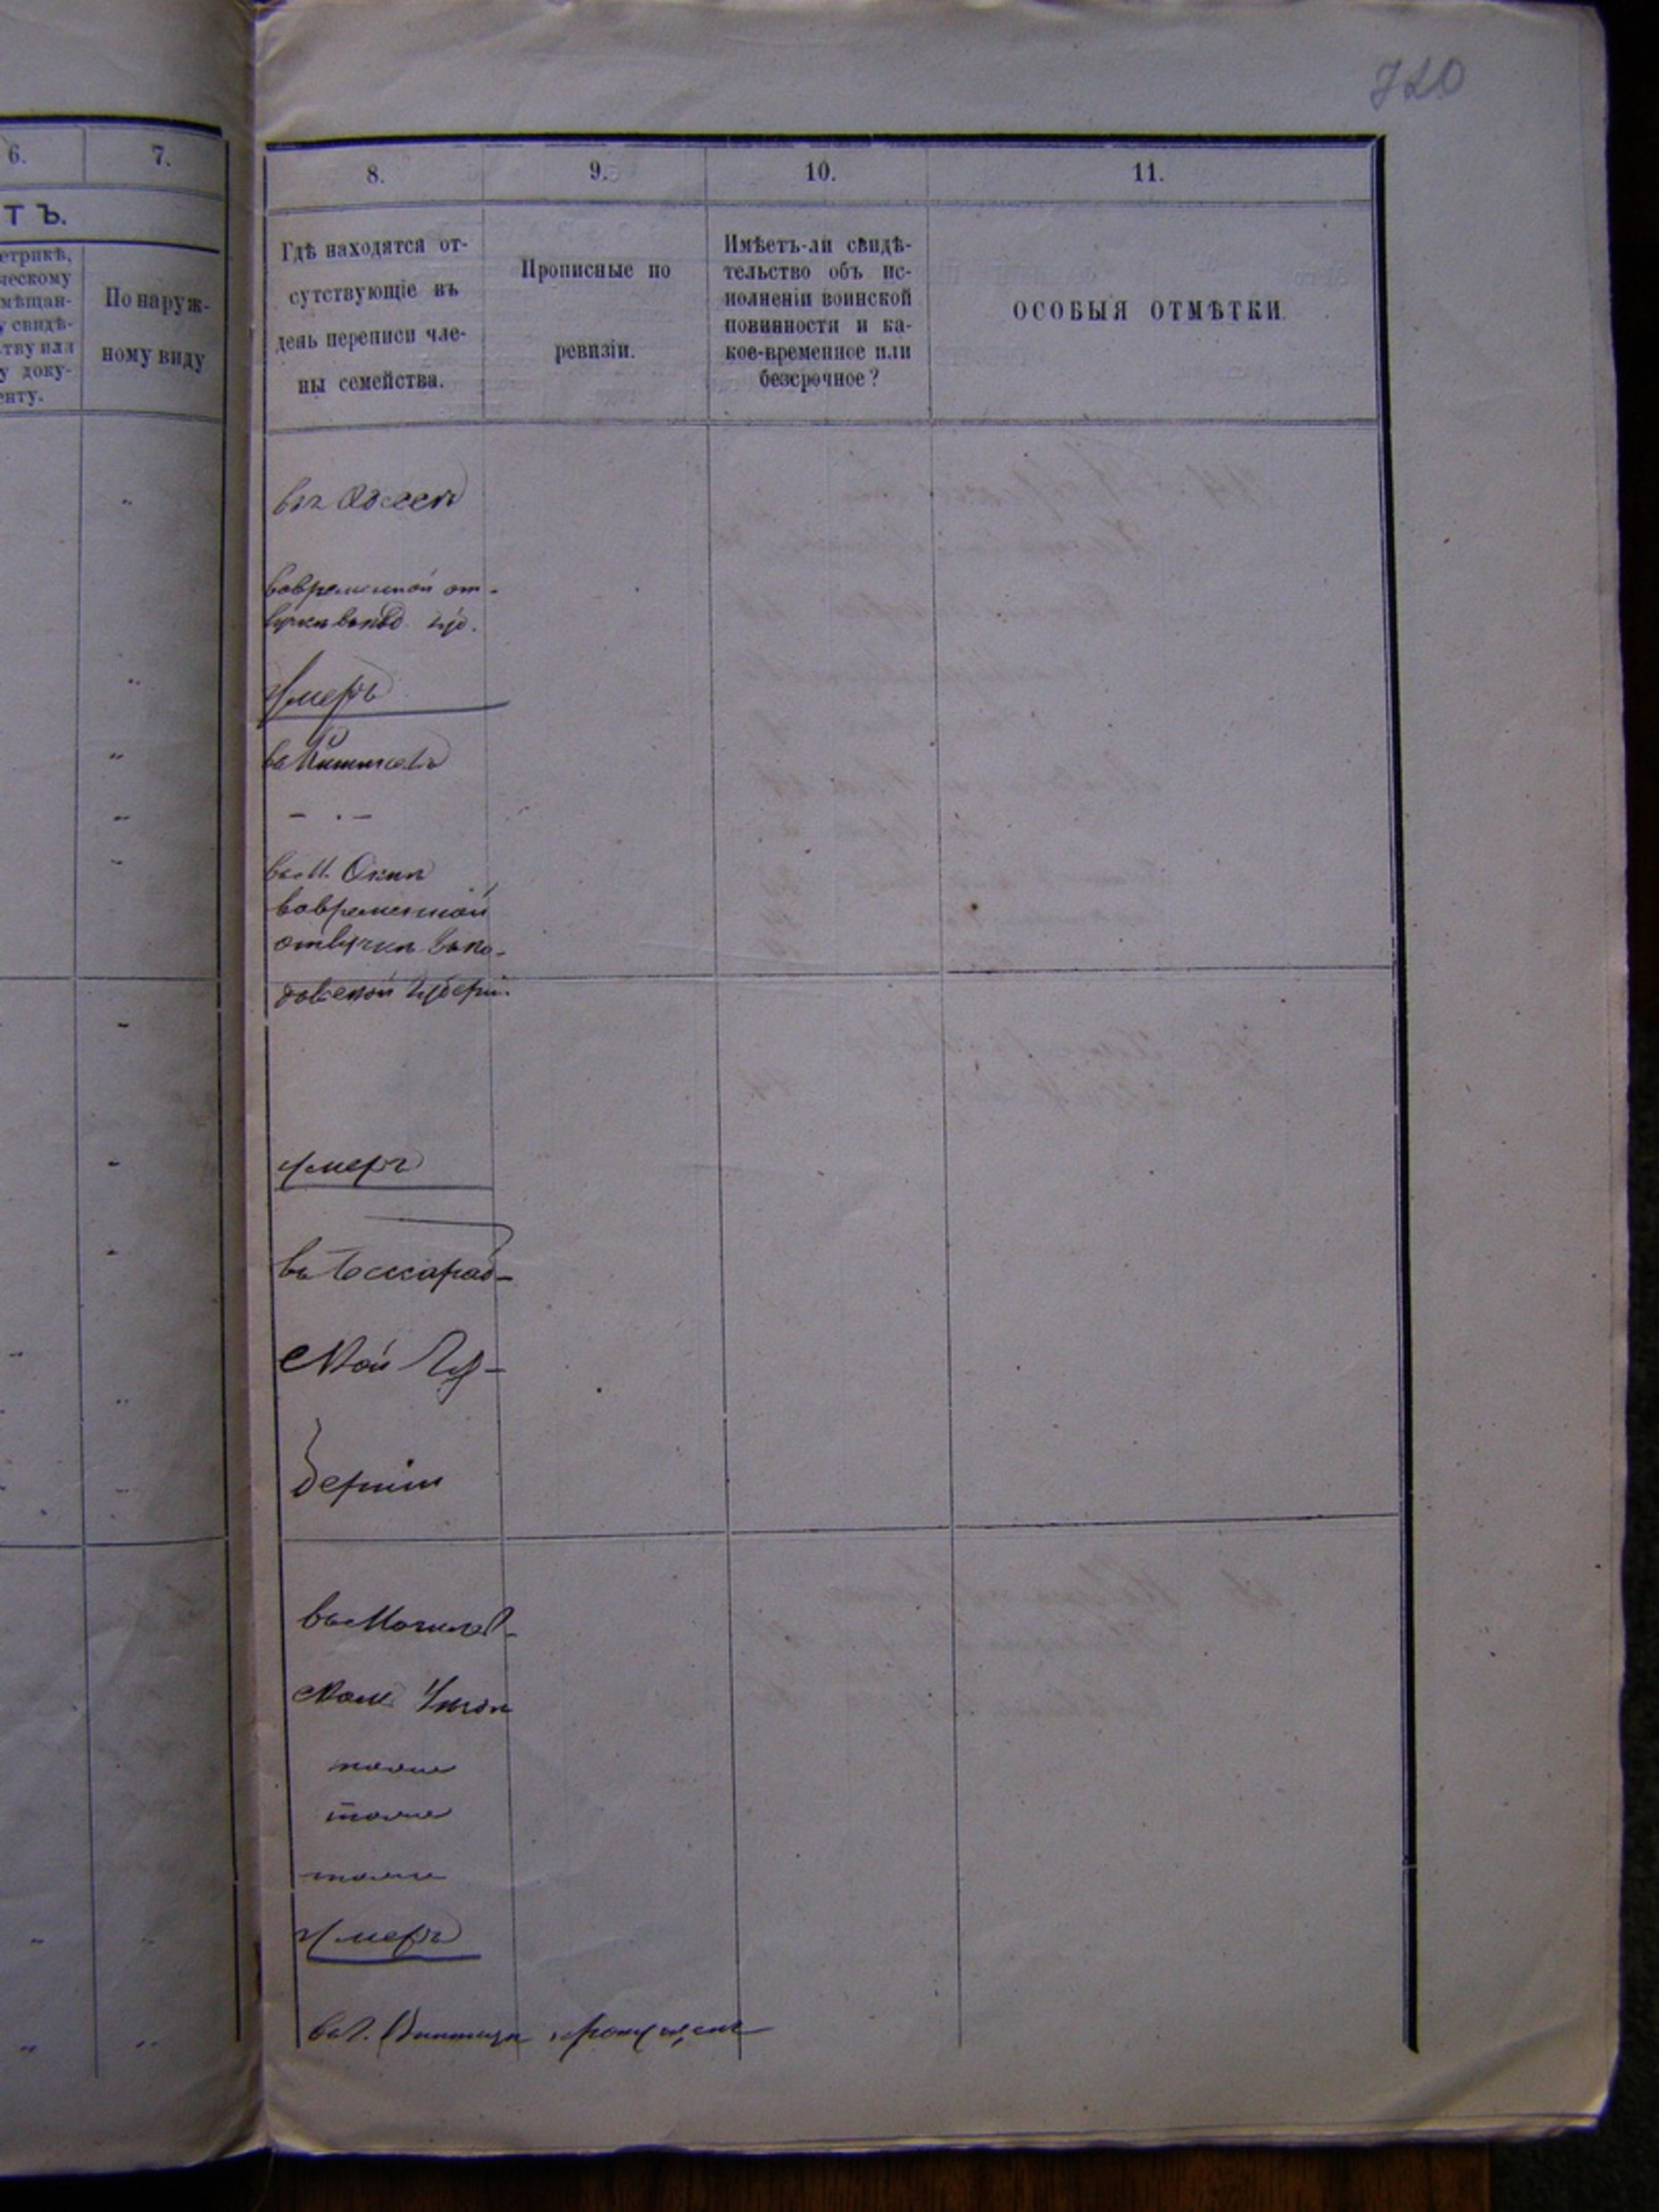 720
6.
7.
8.
9.
10.
11.
ТЪ.
етрикѣ,
ческому
мѣщан-
у свидѣ-
тву или
у доку-
енту.
По наруж-
ному виду
Гдѣ находятся от-
сутствующіе въ
день переписи чле-
ны семейства.
Прописные по
ревизіи.
Имѣетъ-ли свидѣ-
тельство объ ис-
полненіи воинской
повинности и ка-
кое-временное или
безсрочное?
ОСОБЫЯ ОТМѢТКИ.
въ Одессѣ
во временной от-
лучки
умеръ
въ Кишиневѣ
въ М. Окнѣ
во временной
отлучкѣ въ По-
дольской губерніи
умеръ
въ Бессараб-
ской Гу-
берніи
въ Могилев-
скомъ Уѣздѣ
тоже
тоже
тоже
умеръ
въ Г. Винницѣ